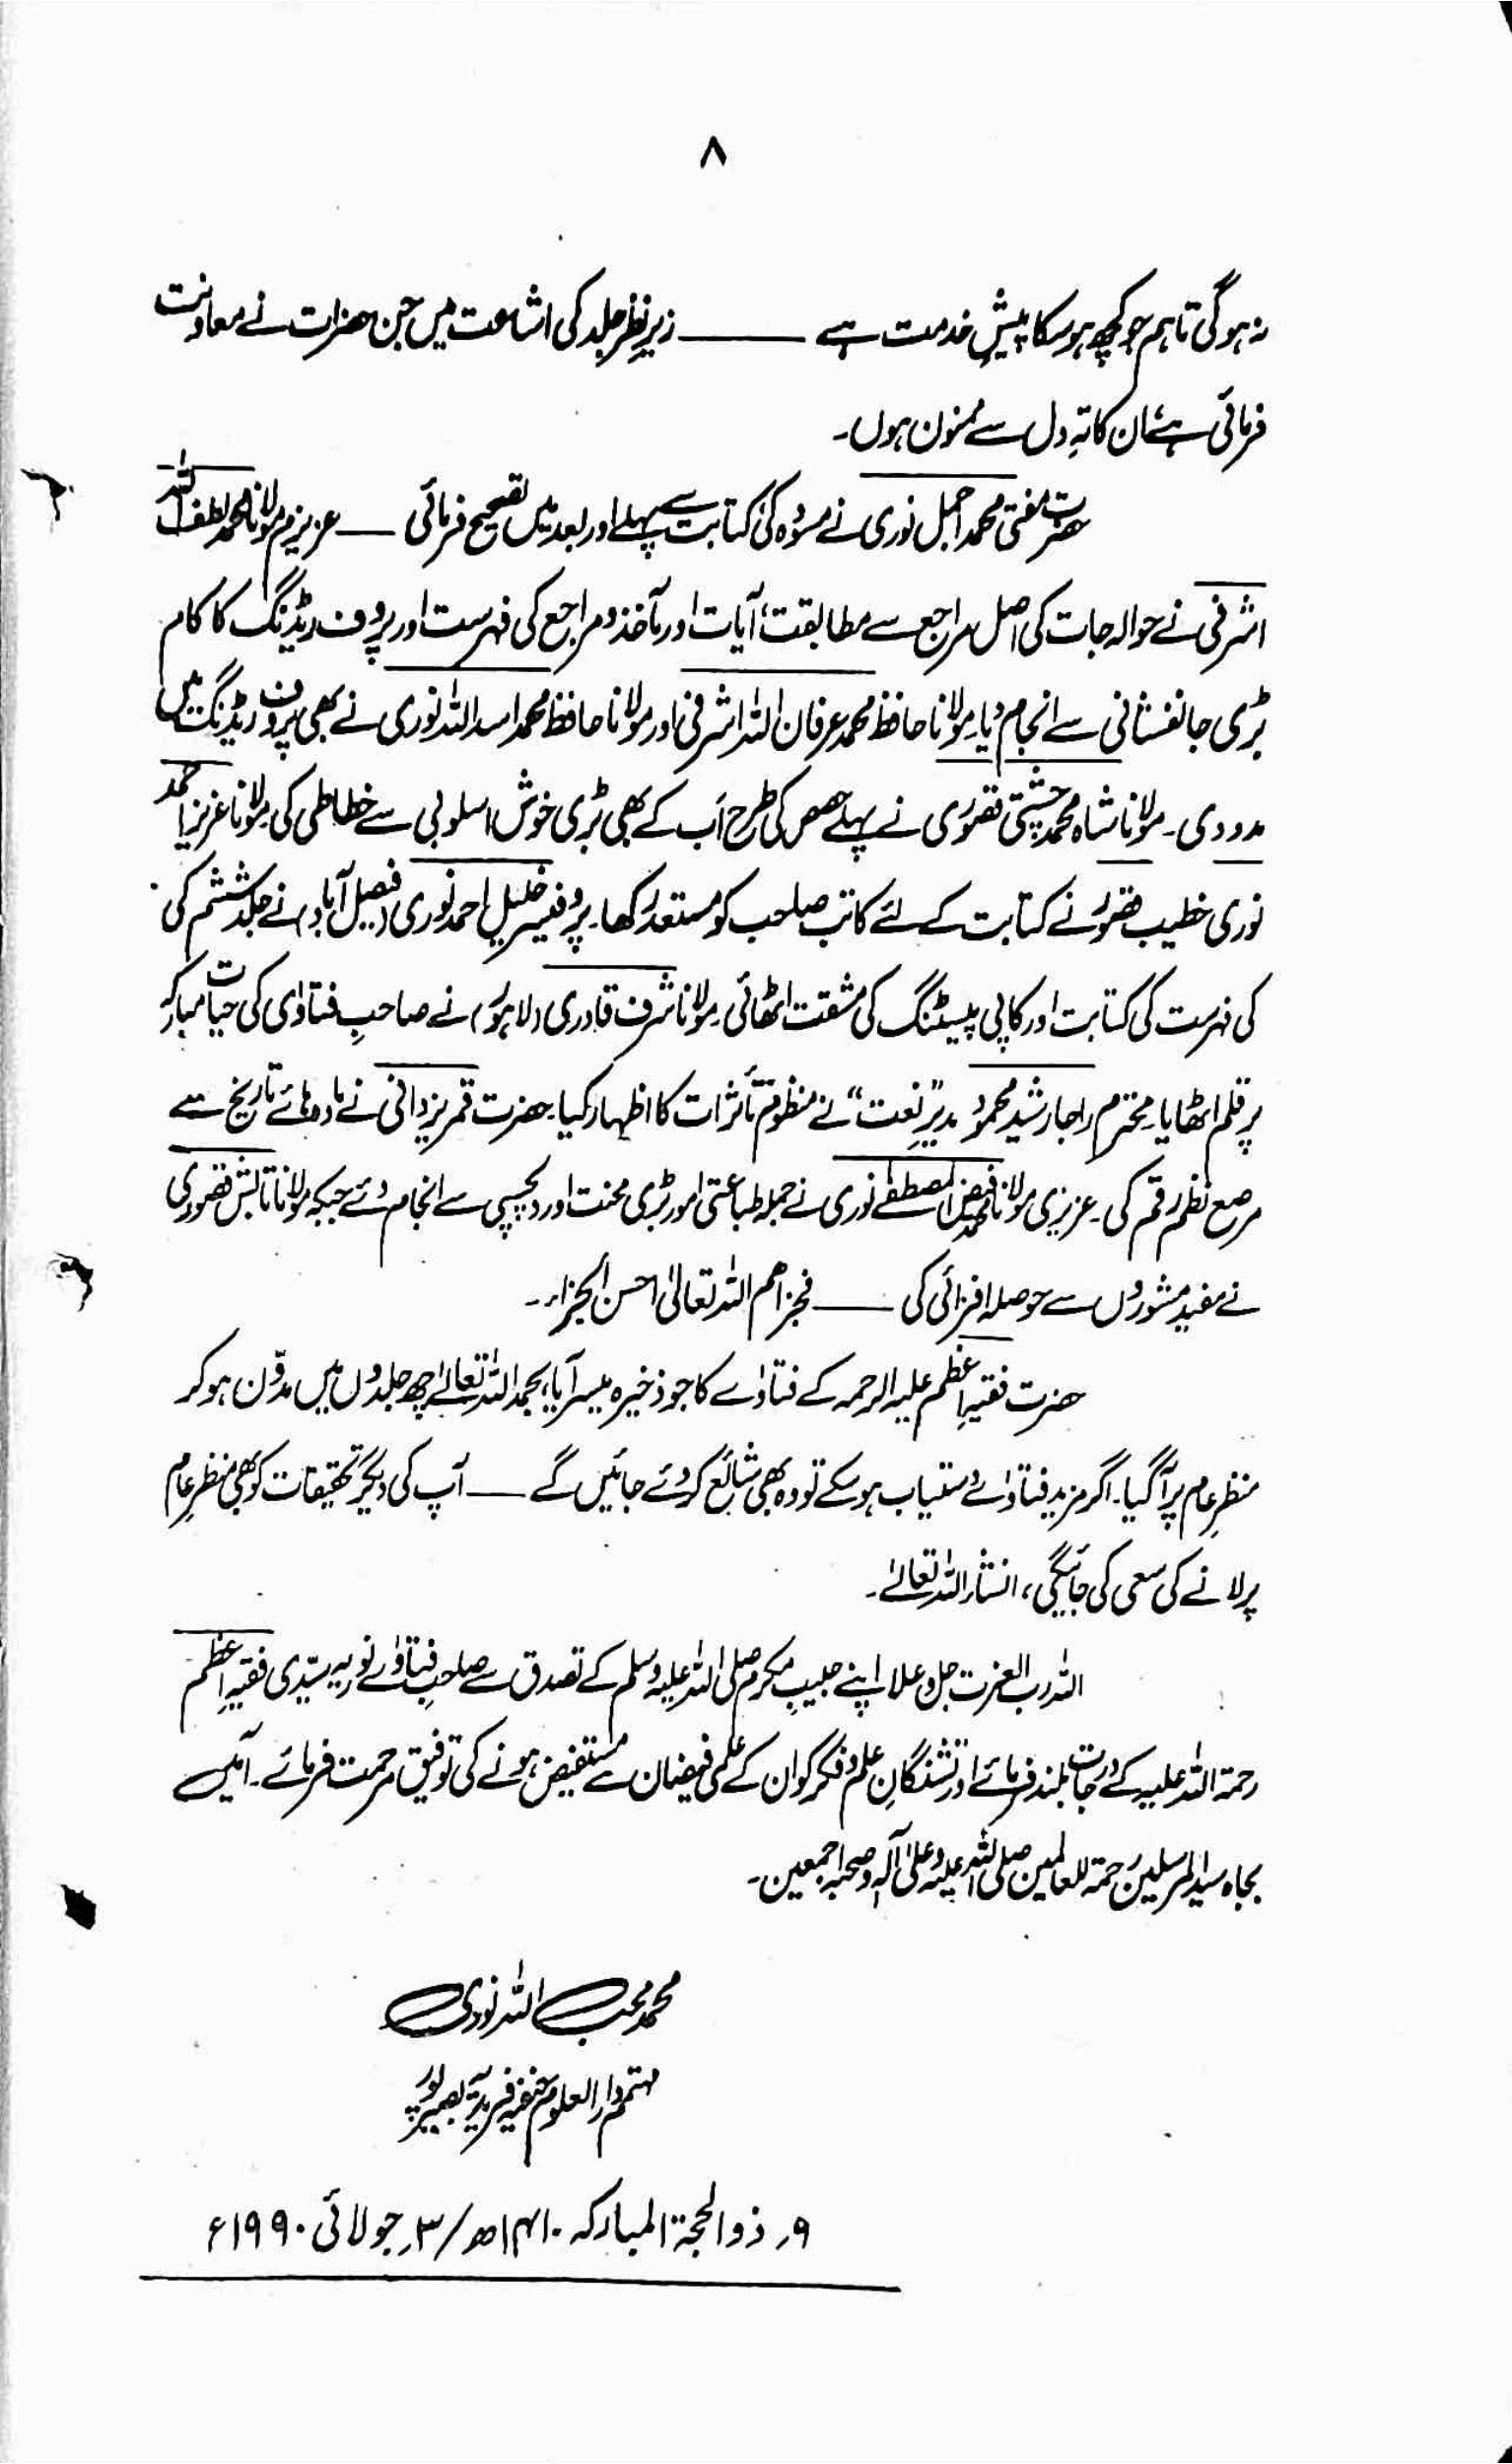 ۸
نہ ہوگی تاہم جو کچھ ہو سکا پیشِ خدمت ہے ــــــ زیرِ نظر جلد کی اشاعت میں جن حضرات نے معاونت
فرمائی ہے، ان کا تہِ دل سے ممنون ہوں۔
حضرت مفتی محمد اجمل نوری نے مسودہ کی کتابت سے پہلے اور بعد میں تصحیح فرمائی ـــ عزیزم مولانا محمد لطف اللہ
اشرفی نے حوالہ جات کی اصل مراجع سے مطابقت، آیات اور مآخذ و مراجع کی فہرست اور پروف ریڈنگ کا کام
بڑی جانفشانی سے انجام دیا۔ مولانا حافظ محمد عرفان اللہ اشرفی اور مولانا حافظ محمد اسد اللہ نوری نے بھی پروف ریڈنگ میں
مدد دی۔ مولانا شاہ محمد چشتی قصوری نے پہلے حصص کی طرح اَب کے بھی بڑی خوش اسلوبی سے خطاطی کی۔ مولانا عزیز احمد
نوری خطیب قصور نے کتابت کے لئے کاتب صاحب کو مستعد رکھا۔ پروفیسر خلیل احمد نوری (فیصل آباد) نے جلد ششم کی
کی فہرست کی کتابت اور کاپی پیسٹنگ کی مشقت اٹھائی۔ مولانا شرف قادری (لاہور) نے صاحبِ فتاوٰی کی حیات مبارکہ
پر قلم اٹھایا۔ محترم راجا رشید محمود مدیرِ ”نعت“ نے منظوم تأثرات کا اظہار کیا۔ حضرت قمر یزدانی نے مادہائے تاریخ سے
مرصع نظم رقم کی۔ عزیزی مولانا محمد فیض المصطفےٰ نوری نے جملہ طباعتی امور بڑی محنت اور دلچسپی سے انجام دئے جبکہ مولانا تابش قصوری
نے مفید مشوروں سے حوصلہ افزائی کی ـــ فجزاھم اللہ تعالیٰ احسن الجزاء۔
حضرت فقیہِ اعظم علیہ الرحمہ کے فتاوٰے کا جو ذخیرہ میسر آیا، بحمد اللہ تعالےٰ چھ جلدوں میں مدوّن ہو کر
منظرِ عام پر آگیا۔ اگر مزید فتاوٰے دستیاب ہو سکے تو وہ بھی شائع کر دئے جائیں گے ـــ آپ کی دیگر تحقیقات کو بھی منظرِ عام
پر لانے کی سعی کی جائیگی، انشاء اللہ تعالےٰ۔
اللہ رب العزت جل و علا اپنے حبیبِ مکرم صلی اللہ علیہ وسلم کے تصدق سے صاحبِ فتاوٰے نوریہ سیّدی فقیہِ اعظم
رحمۃ اللہ علیہ کے درجات بلند فرمائے اور تشنگانِ علم و فکر کو ان کے علمی فیضان سے مستفیض ہونے کی توفیق مرحمت فرمائے۔ آمین
بجاہ سید المرسلین رحمۃ للعالمین صلی اللہ علیہ وعلیٰ آلہٖ وصحبہٖ اجمعین۔
محمد محب اللہ نوری
مہتمم دار العلوم حنفیہ فریدیہ بصیرپور
۹؍ ذوالحجۃ المبارکہ ۱۴۱۰ھ/۳؍جولائی ۱۹۹۰ء